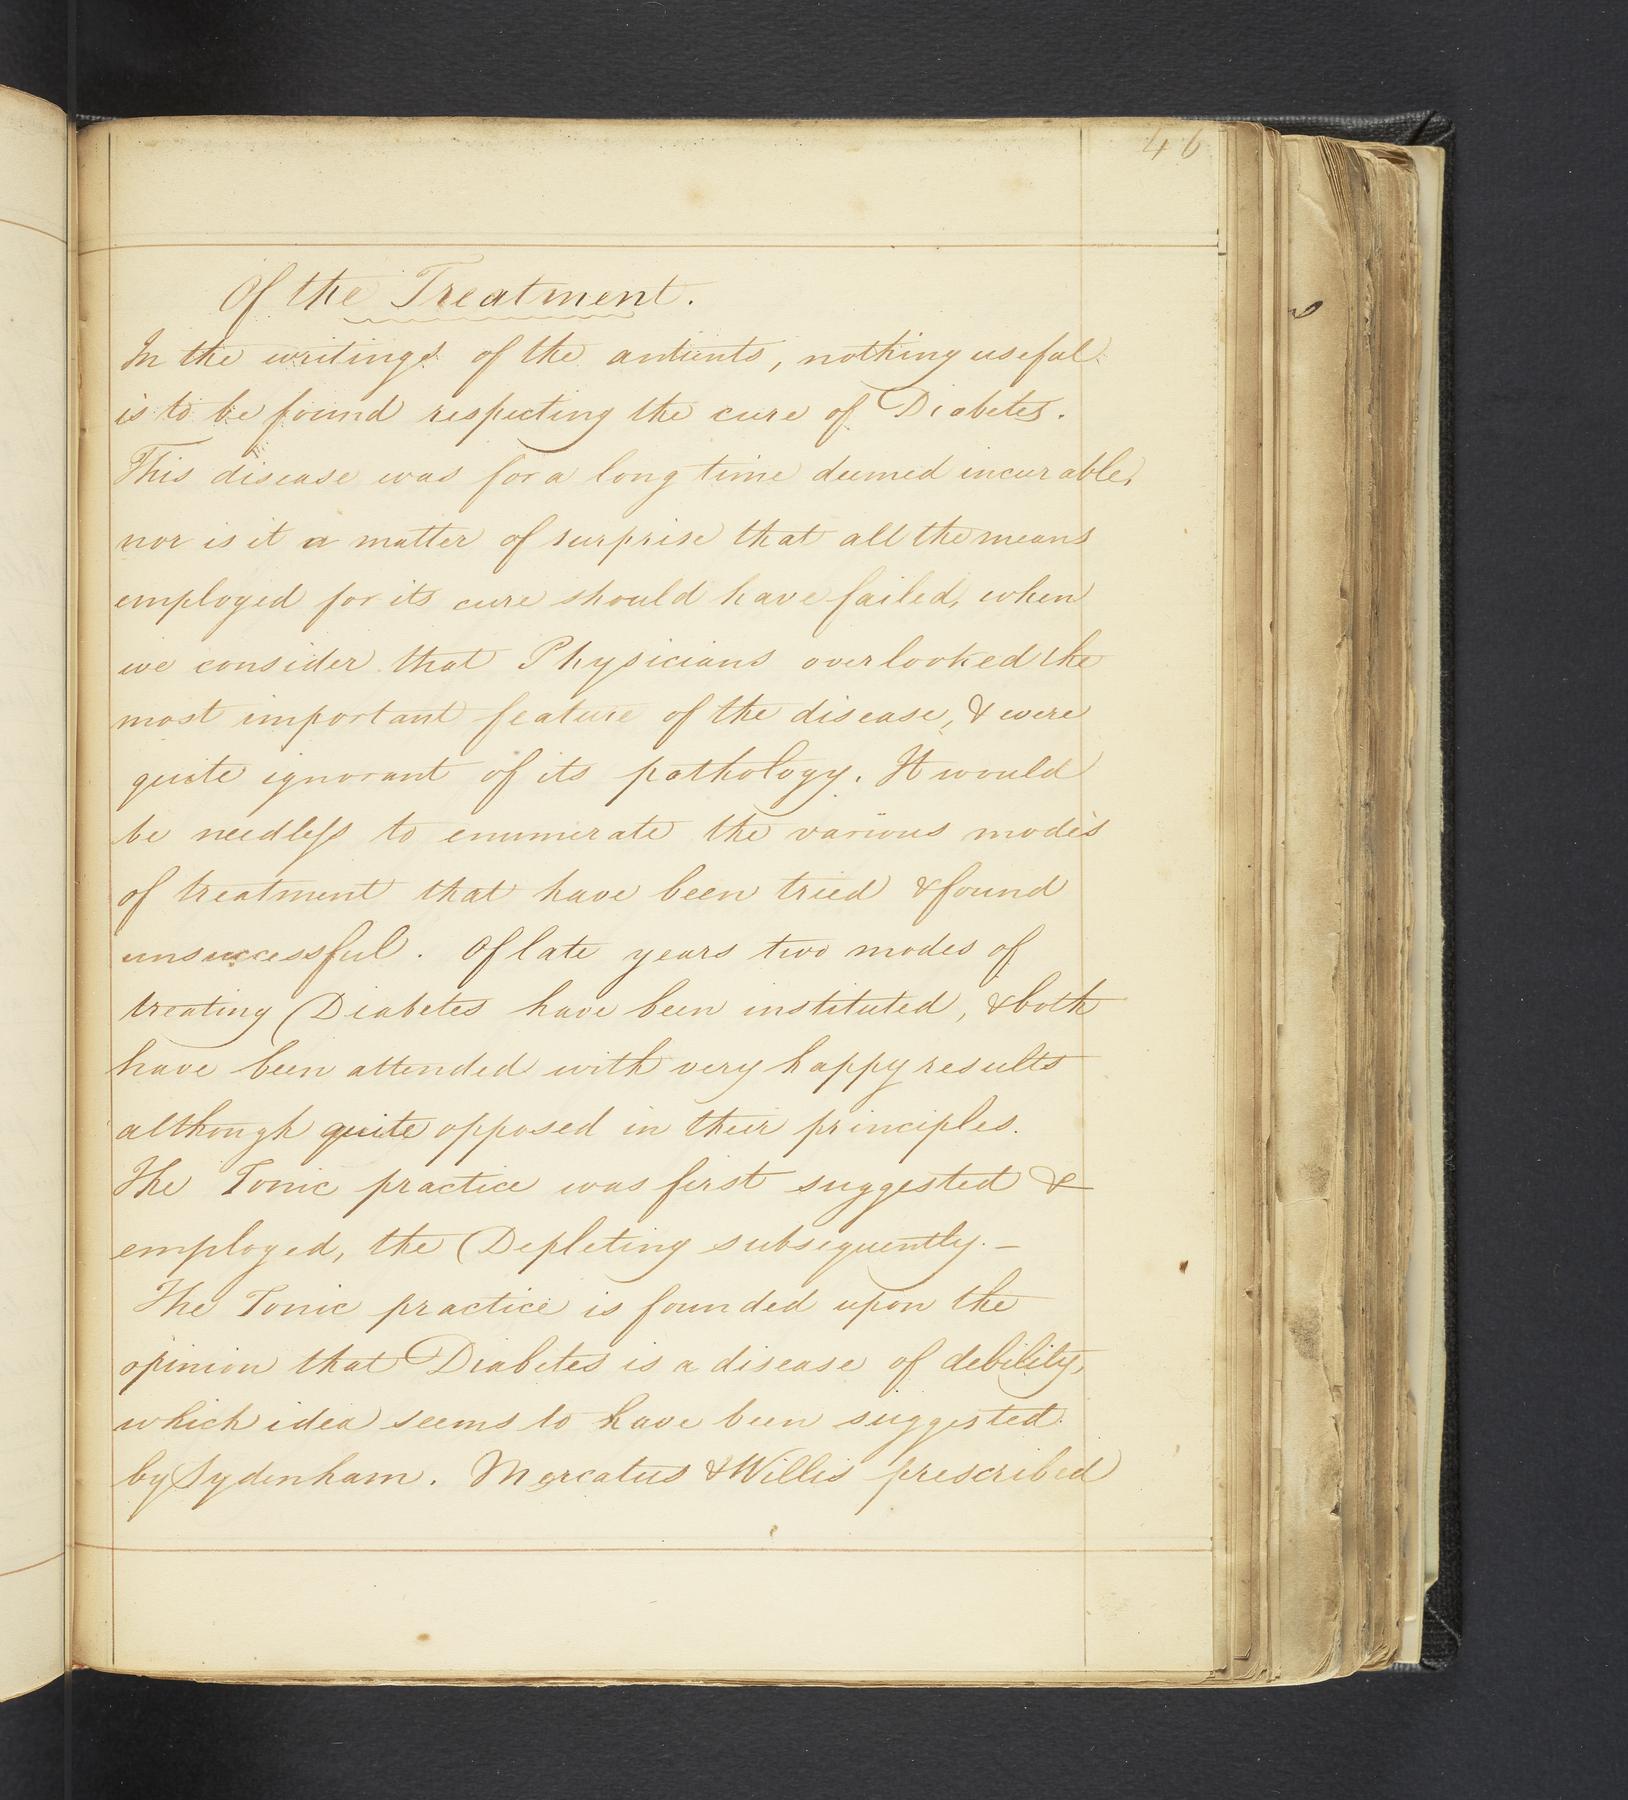 46
Of the Treatment.
In the writings of the antients, nothing useful
is to be found respecting the cure of Diabetes.
This disease was for a long time deemed incurable,
nor is it a matter of surprise that all the means
employed for its cure should have failed, when
we consider that Physicians overlooked the
most important feature of the disease, & were
quite ignorant of its pathology. It would
be needless to enumerate the various modes
of treatment that have been tried & found
unsuccessful. Of late years two modes of
treating Diabetes have been instituted, & both
have been attended with very happy results
although quite opposed in their principles.
The Tonic practice was first suggested &
employed, the Depleting subsequently. –
The Tonic practice is founded upon the
opinion that Diabetes is a disease of debility,
which idea seems to have been suggested
by Sydenham. Mercatus & Willis prescribed